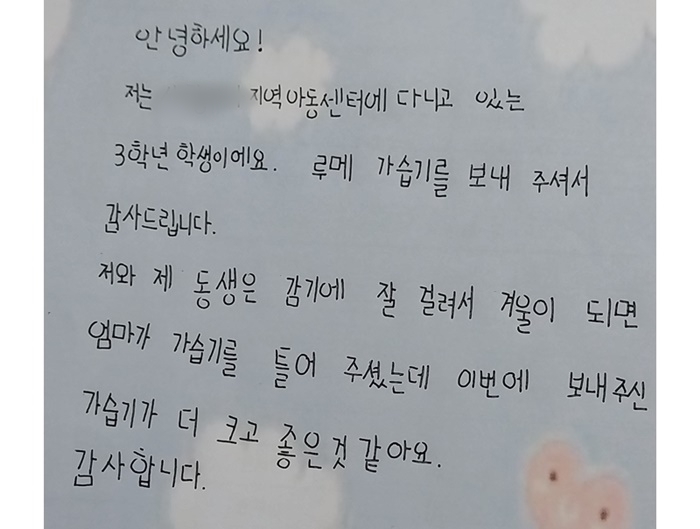 안녕하세요!
저는 지역아동센터에 다니고 있는
3학년 학생이에요. 루메 가습기를 보내 주셔서
감사드립니다.
저와 제 동생은 감기에 잘 걸려서 겨울이 되면
엄마가 가습기를 틀어 주셨는데 이번에 보내주신
가습기가 더 크고 좋은것 같아요.
감사합니다.